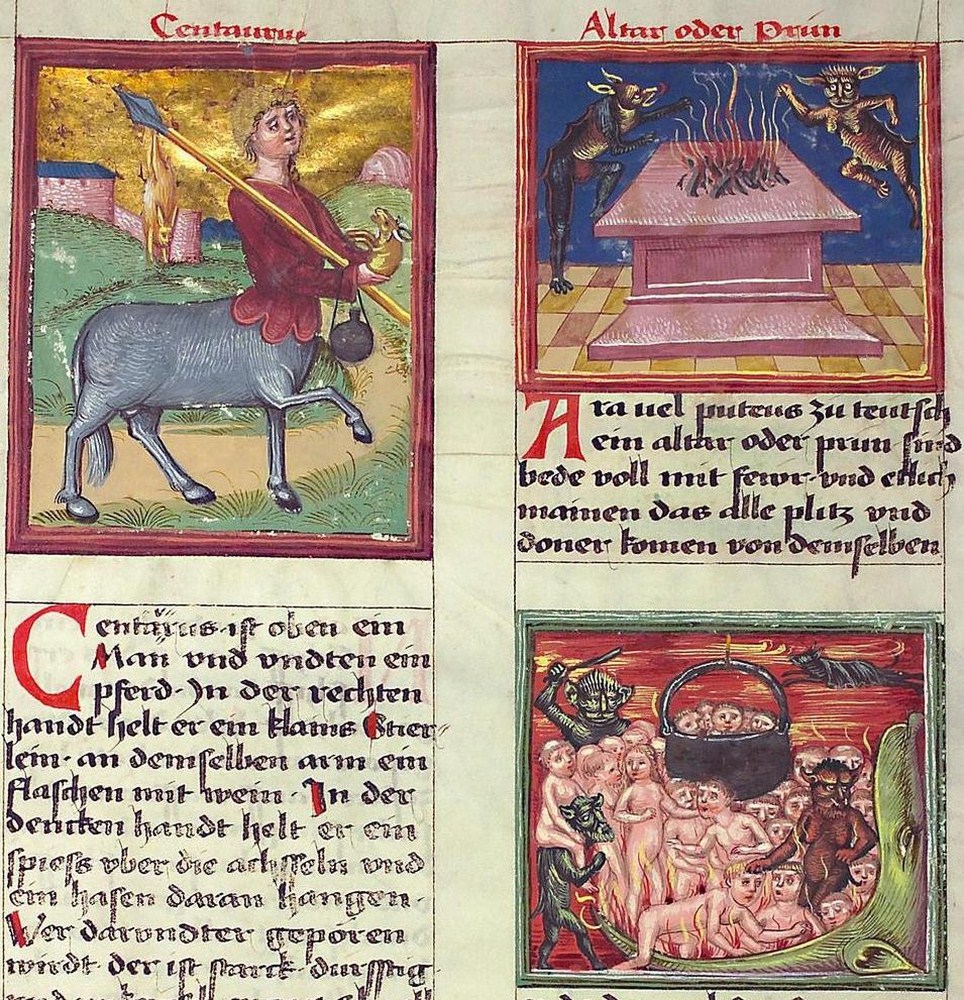 Centaurus
Centaurus ist oben ein
Man vnd vndten ein
pferd. In der rechten
handt helt er ein klains Stier
lein. an demselben arm ein
flaschen mit wein. In der
dencken handt helt er ein
spiess vber die achsseln vnd
ein hasen daran hangen.
Wer darvndter geporen
wirdt der ist starck. durstig
Altar oder Prun
Ara uel puteus zu teutsch
ein altar oder prun sind
bede voll mit fewr. vnd etlich
mainen das alle plitz vnd
doner komen von demselben